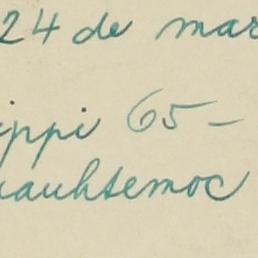 24 de mar
ippi 65-
uauhtemoc